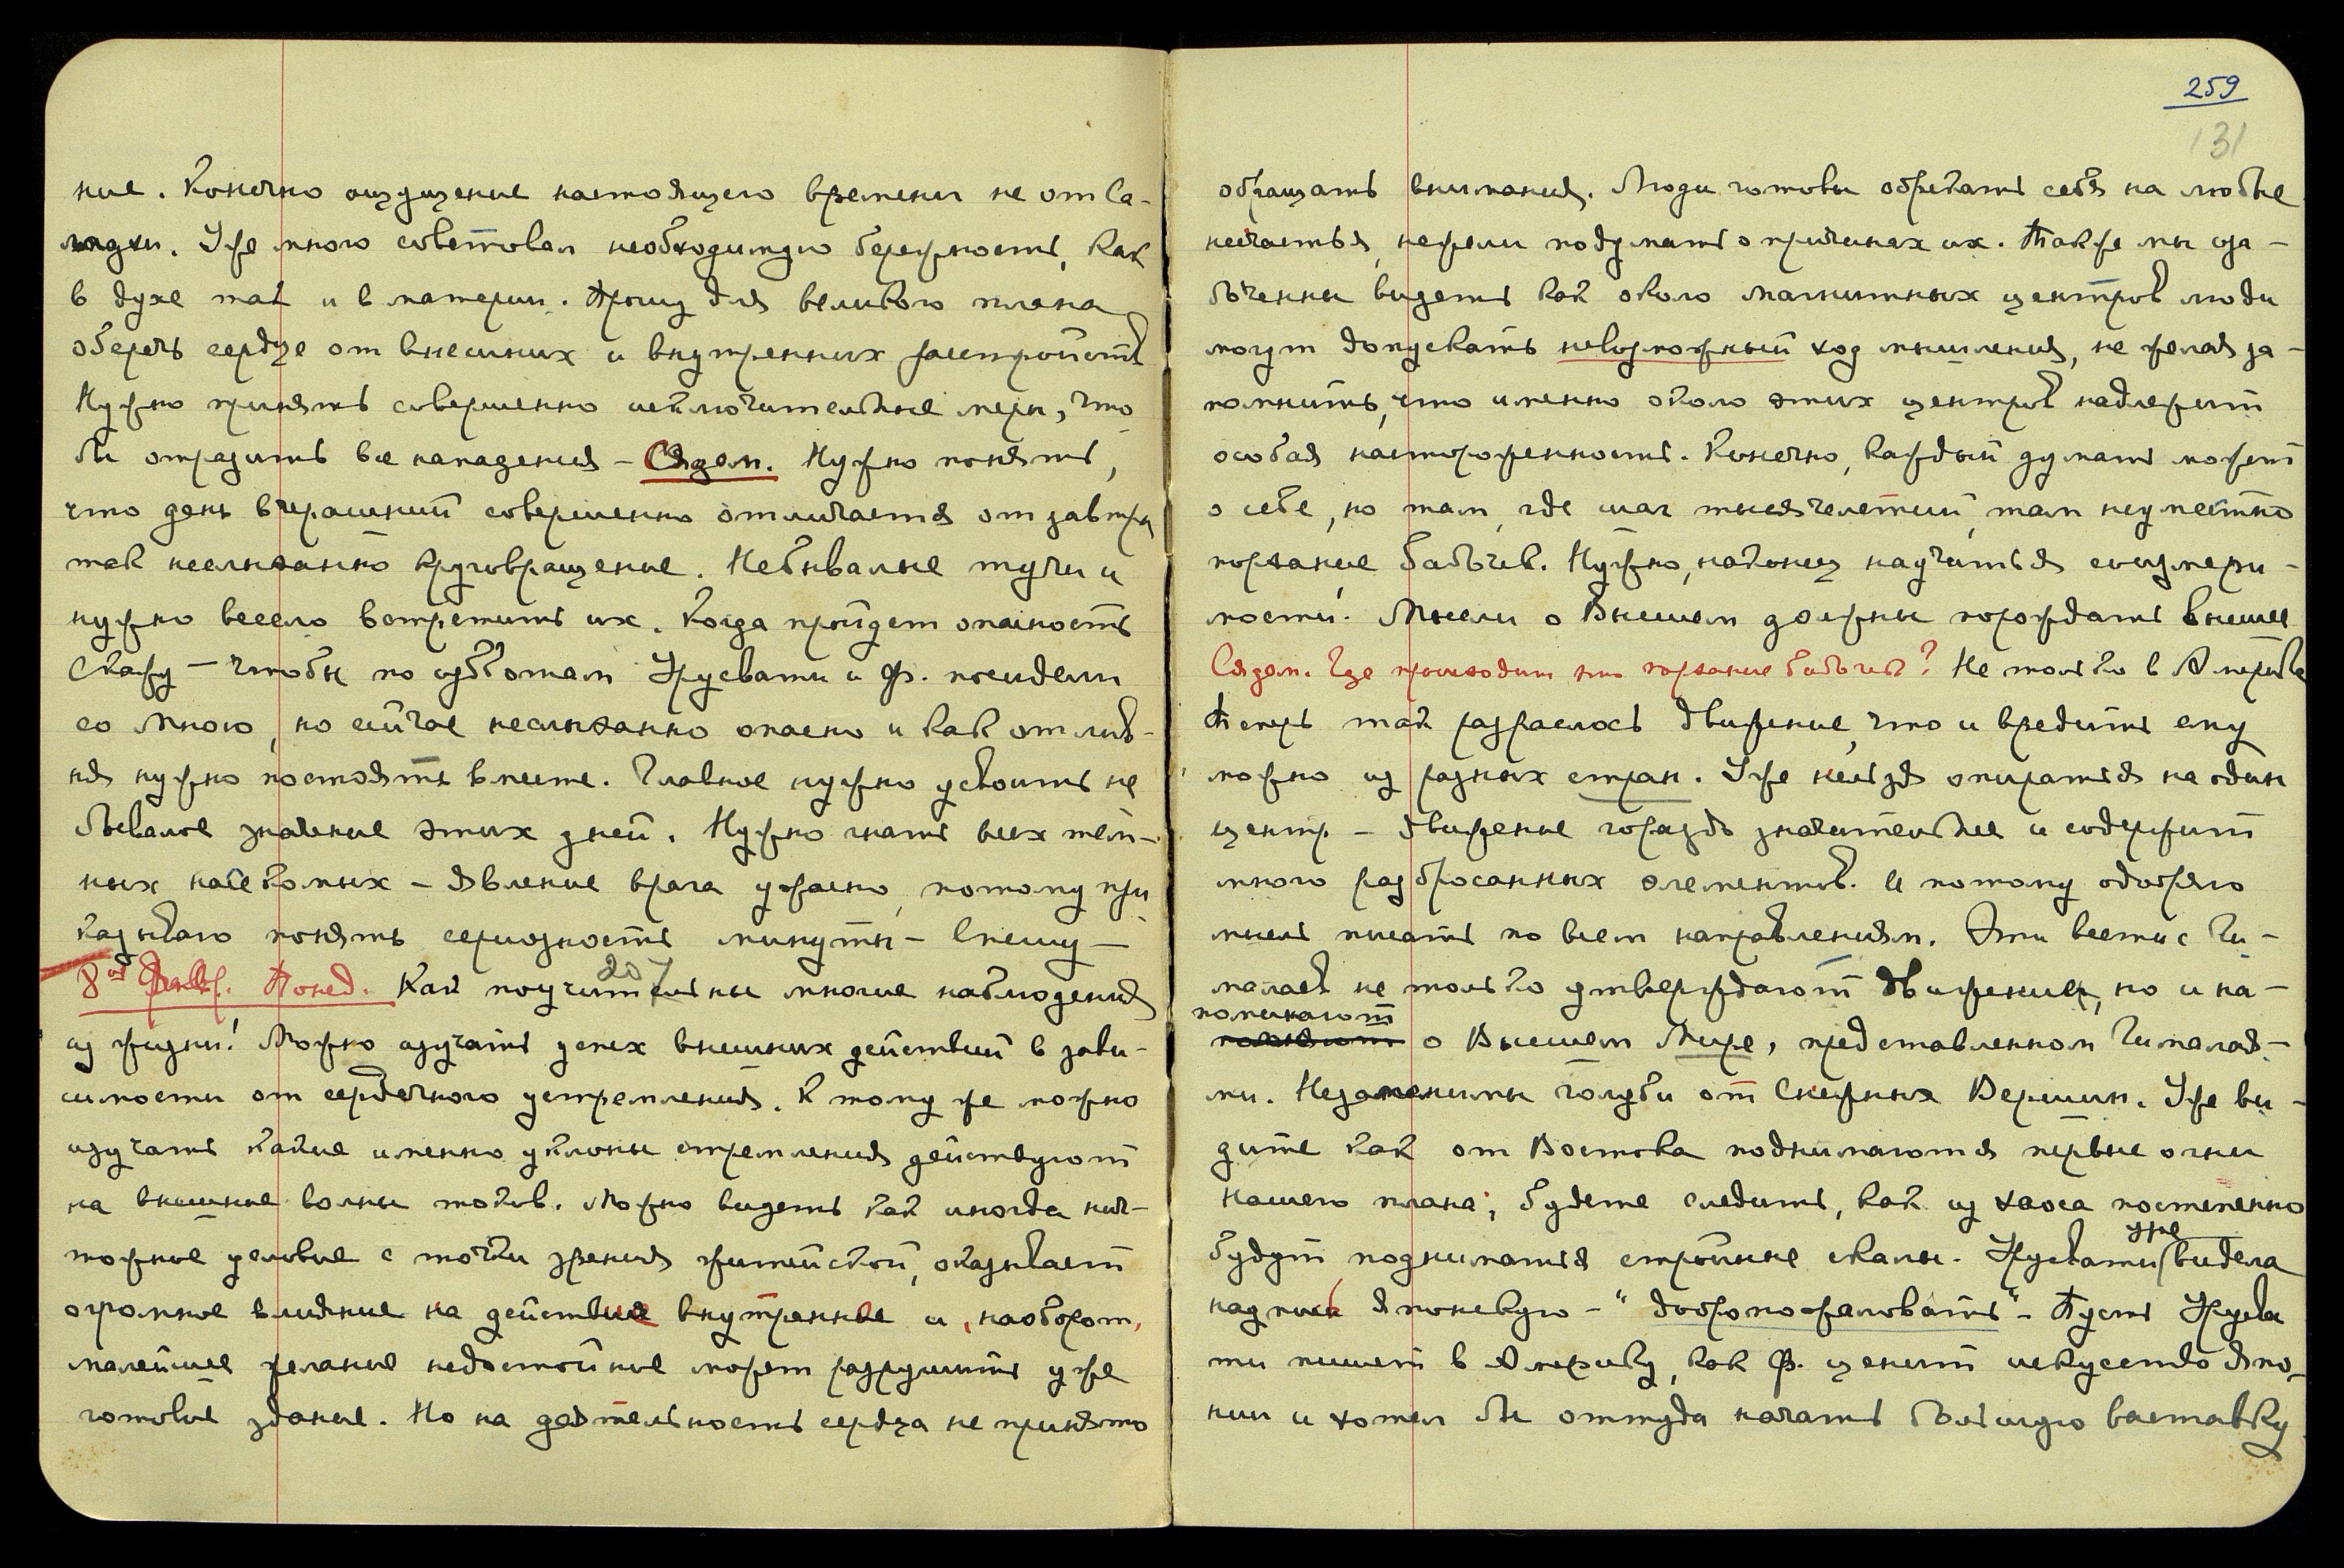 ние. Конечно ощущение настоящего времени не от Са-
магды. Уже много советовал необходимую бережность, как
в духе так и в материи. Прошу для великого плана
оберечь сердце от внешних и внутренних расстройств
Нужно принять совершенно исключительные меры, что
бы отразить все нападения – Сядем. Нужно понять,
что день вчерашний совершенно отличается от завтра
так неслыханно круговращение. Небывалые тучи и
нужно весело встретить их. Когда пройдет опасность
Скажу – чтобы по субботам Урусвати и Ф. посидели
со Мною, но сейчас неслыханно опасно и как от лив-
ня нужно постоять вместе. Главное нужно усвоить не
бывалое значение этих дней. Нужно гнать всех тем-
ных насекомых – явление врага ужасно, потому при
казываю понять серьозность минуты – Спешу –
8ое Февр. Понед. Как поучительны многие наблюдения
207
из жизни! Можно изучать успех внешних действий в зави-
симости от сердечного устремления. К тому же можно
изучать какие именно уклоны стремления действуют
на внешние волны токов. Можно видеть как иногда нич-
тожное условие с точки зрения житейской, оказывает
огромное влияние на действие внутреннее и, наоборот,
малейшее желание недостойное может разрушить уже
готовые здание. Но на деятельность сердца не принято
259
131
обращать внимания. Люди готовы обрекать себя на любые
несчастья, нежели подумать о причинах их. Также мы оза-
бочены видеть как около магнитных центров люди
могут допускать невозможный ход мышления, не желая за-
помнить, что именно около этих центров надлежит
особая настороженность. Конечно, каждый думать может
о себе, но там, где шаг тысячелетий, там неуместно
порхание бабочек. Нужно, наконец научиться соизмери-
мости. Мысли о Высшем должны порождать высшее
Сядем. Где происходит это порхание бабочек? Не только в Америке
Теперь так разрослось движение, что и вредить ему
можно из разных стран. Уже нельзя опираться на один
центр – движение гораздо значительнее и содержит
много разбросанных элементов. И потому одобряю
мысль писать по всем направлениям. Эти вести с Ги-
малаев не только утверждают движение, но и на-
поминают
о Высшем Мире, представленном Гималая-
ми. Незаменимы голуби от Снежных Вершин. Уже ви-
дите как от Востока поднимаются первые огни
Нашего плана; будете следить, как из хаоса постепенно
будут подниматься стройные скалы. Урусвати уже видела
надпись японскую – "добро пожаловать" – Пусть Урусва
ти пишет в Америку, как Ф. ценит искусство Япо-
нии и хотел бы оттуда начать большую выставку